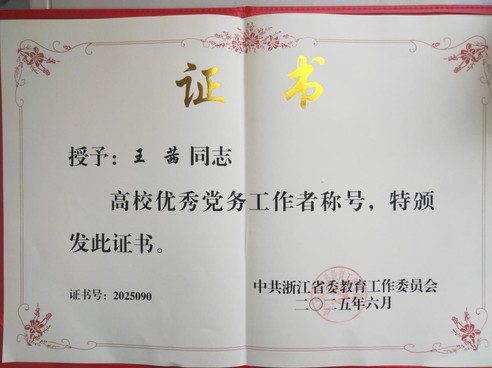 证 书
授予：王 茜 同志
高校优秀党务工作者称号，特颁
发此证书。
中共浙江省委教育工作委员会
证书号：2025090
二〇二五年六月